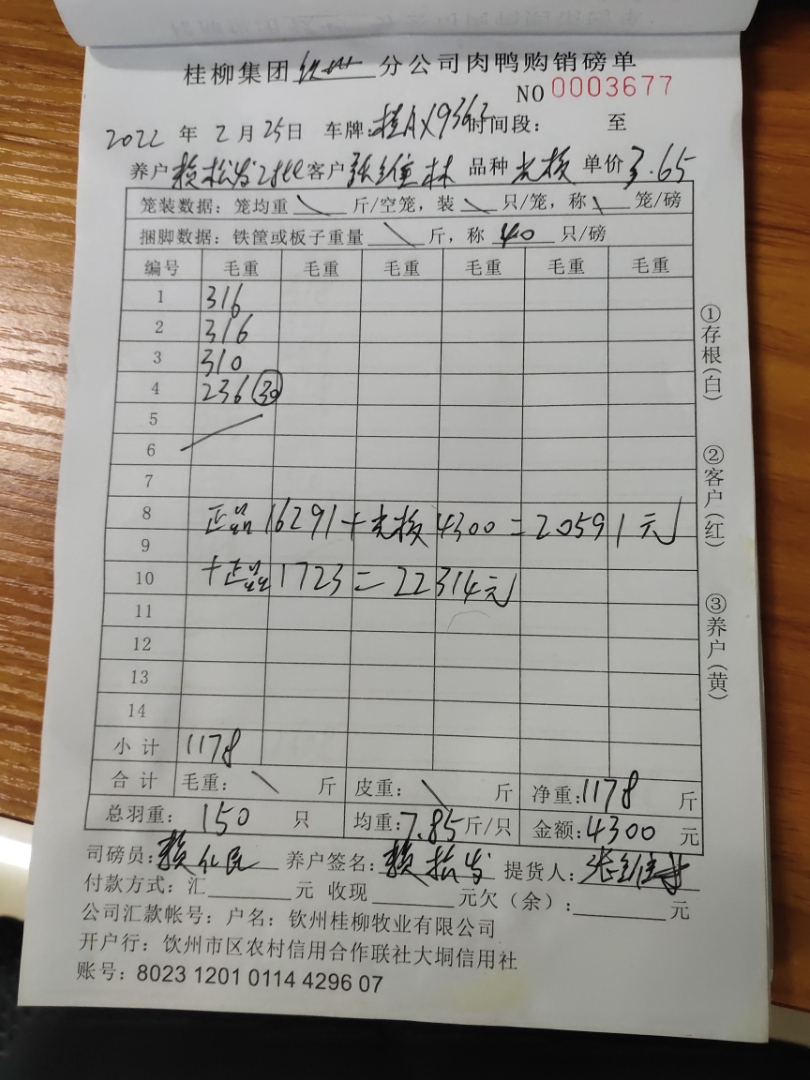 桂柳集团 钦州 分公司肉鸭购销磅单
NO 0003677
2022 年 2 月 25 日 车牌: 桂A 时间段: 至
养户 赖松发 客户 张维林 品种 光核 单价 3.65
笼装数据: 笼均重 \ 斤/空笼, 装 \ 只/笼, 称 \ 笼/磅
捆脚数据: 铁筐或板子重量 \ 斤, 称 40 只/磅
编号 毛重 毛重 毛重 毛重 毛重 毛重
1 316
2 316
3 310
4 236 30
5
6
7
8 正品 16291 + 光核 4300 = 20591 元
9
10 + 正品 1723 = 22314元
11
12
13
14
小计 1178
合计 毛重: \ 斤 皮重: \ 斤 净重: 1178 斤
总羽重: 150 只 均重: 7.85 斤/只 金额: 4300 元
司磅员: 赖仁民 养户签名: 赖松发 提货人: 张维林
付款方式: 汇 元 收现 元欠(余): 元
公司汇款帐号: 户名: 钦州桂柳牧业有限公司
开户行: 饮州市区农村信用合作联社大垌信用社
账号: 8023 1201 0114 4296 07
①存根(白)
②客户(红)
③养户(黄)